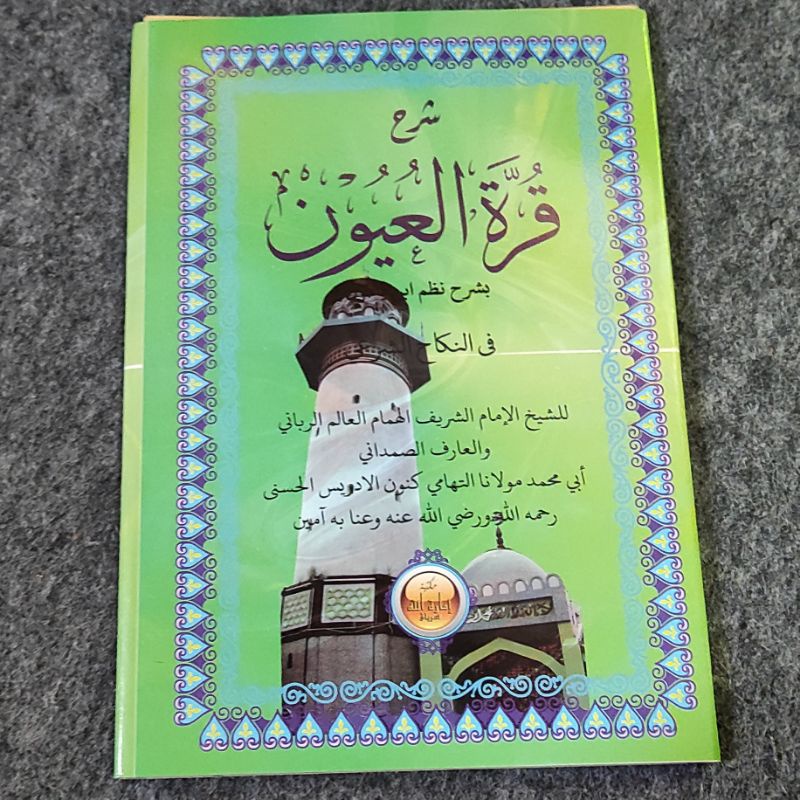 شرح
قُرَّةُ العُيُون
بشرح نظم
فى النكاح
للشيخ الإمام الشريف الهمام العالم الرباني
والعارف الصمداني
أبي محمد مولانا التهامي كنون الادريس الحسنى
رحمه الله ورضي الله عنه وعنا به آمين
مكتبة